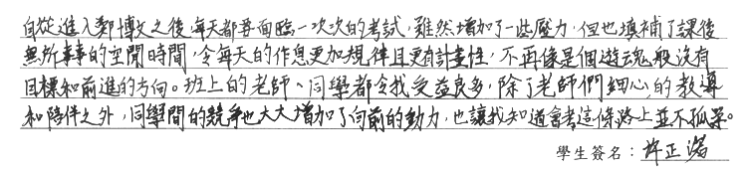 自從進入鄭博文之後每天都要面臨一次次的考試，雖然增加了一些壓力，但也填補了課後
無所事事的空閒時間，令每天的作息更加規律且更有計畫性，不再像是個遊魂般沒有
目標和前進的方向。班上的老師、同學都令我受益良多，除了老師們細心的教導
和陪伴之外，同學間的競爭也大大增加了向前的動力，也讓我知道會考這條路上並不孤單。
學生簽名：許正